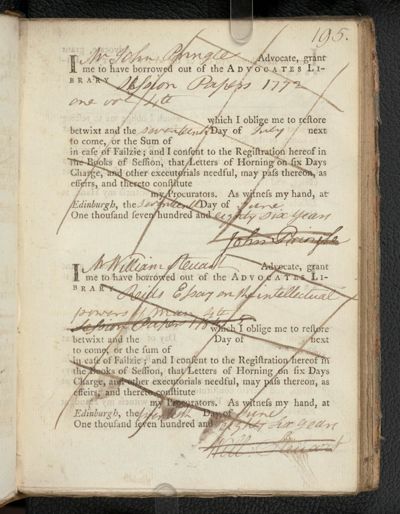 195.
I Mr John Pringle Advocate, grant
me to have borrowed out of the ADVOCATES LI-
BRARY Session Papers 1772
one vol. 4th
which I oblige me to restore
betwixt and the seventeenth Day of July next
to come, or the Sum of
in case of Failzie; and I consent to the Registration hereof in
the Books of Session, that Letters of Horning on six Days
Charge, and other executorials needful, may pass thereon, as
effeirs, and thereto constitute
my Procurators. As witness my hand, at
Edinburgh, the seventeenth Day of June
One thousand seven hundred and eighty six years
John Pringle
I Mr William Steuart Advocate, grant
me to have borrowed out of the ADVOCATES LI-
BRARY Reids Essays on the intellectual
powers of man 4to
Session Papers
which I oblige me to restore
betwixt and the Day of next
to come, or the sum of
in case of Failzie; and I consent to the Registration hereof in
the Books of Session, that Letters of Horning on six Days
Charge, and other executorials needful, may pass thereon, as
effeirs, and thereto constitute
my Procurators. As witness my hand, at
Edinburgh, the Day of June
One thousand seven hundred and eighty six years
Will Steuart